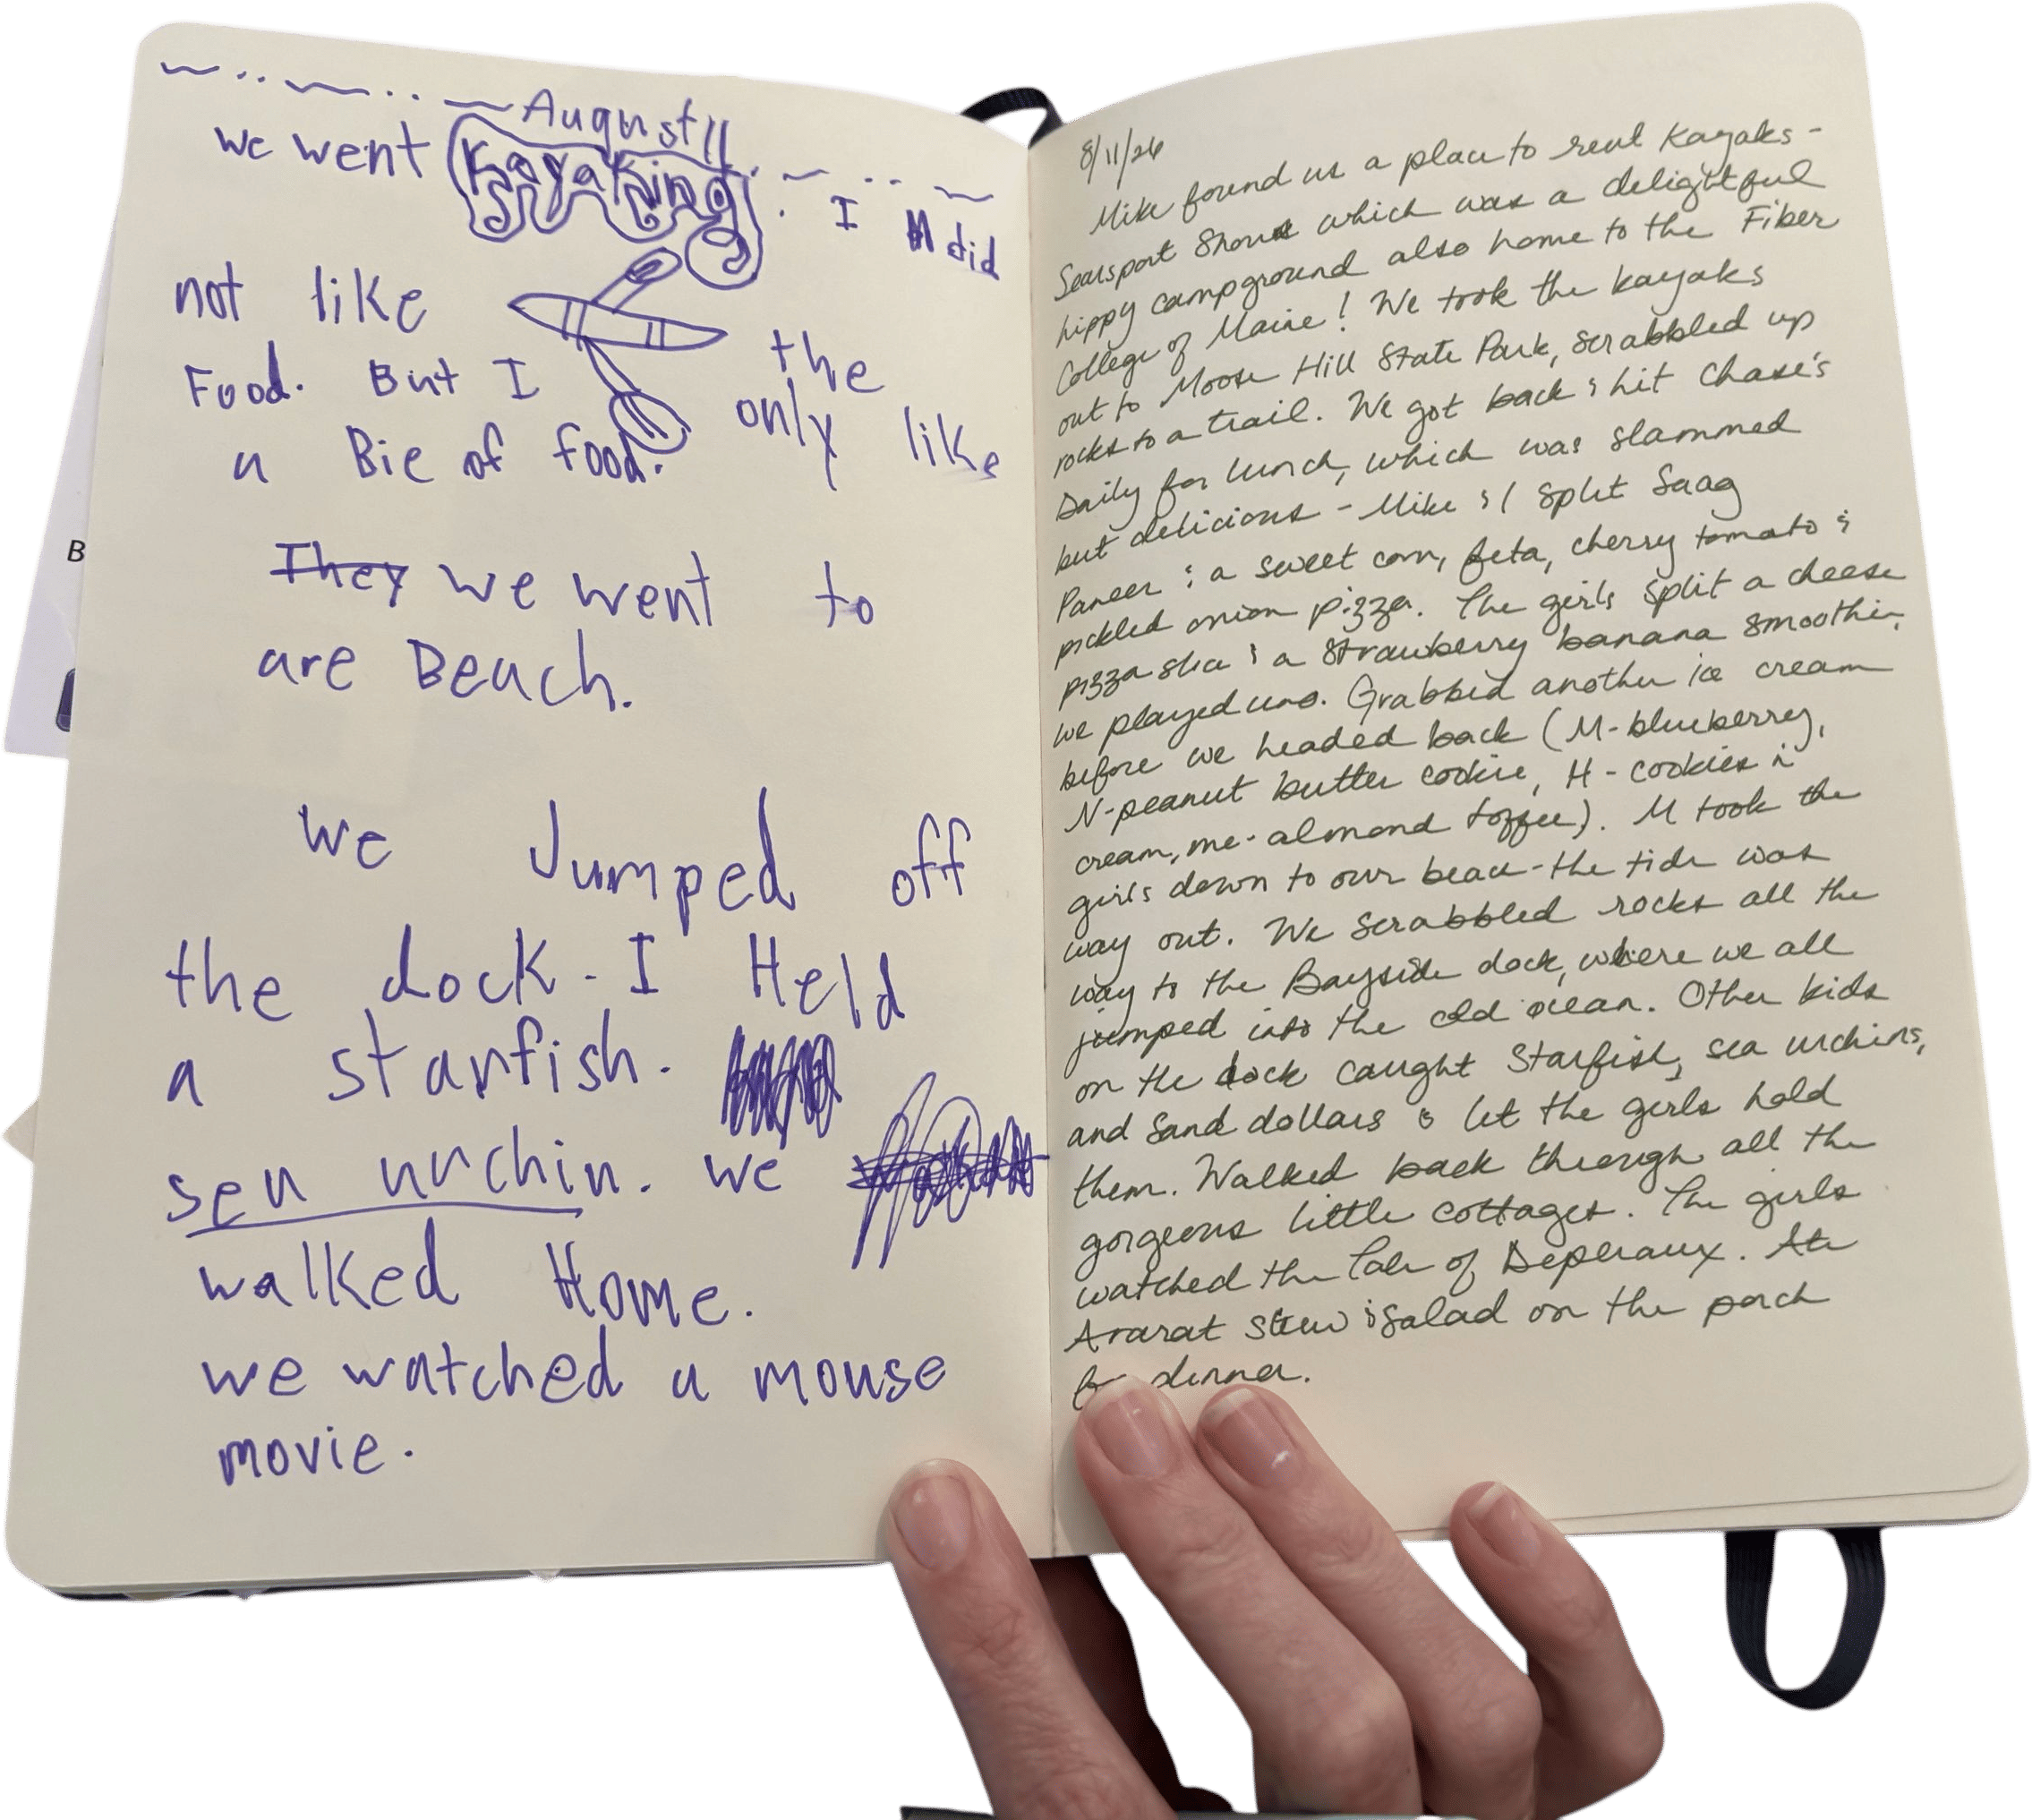 August 11
we went Kayaking. I did
not like the
Food. But I only like
a Bie of food.
They we went to
are Beach.
we Jumped off
the dock. I Held
a starfish.
sea urchin. we
walked Home.
we watched a mouse
movie.
B
8/11/26
Mike found us a place to rent kayaks -
Searsport Shores which was a delightful
hippy campground also home to the Fiber
College of Maine! We took the kayaks
out to Moose Hill State Park, scrabbled up
rocks to a trail. We got back & hit Chase's
Daily for lunch, which was slammed
but delicious - Mike & I split Saag
Paneer & a sweet corn, feta, cherry tomato &
pickled onion pizza. The girls split a cheese
pizza slice & a strawberry banana smoothie,
we played uno. Grabbed another ice cream
before we headed back (M-blueberry,
N-peanut butter cookie, H-cookies n
cream, me-almond toffee). M took the
girls down to our beach - the tide was
way out. We scrabbled rocks all the
way to the Bayside dock, where we all
jumped into the cold ocean. Other kids
on the dock caught starfish, sea urchins,
and sand dollars & let the girls hold
them. Walked back through all the
gorgeous little cottages. The girls
watched the Tale of Depleraux. Ate
Ararat stew & salad on the porch
for dinner.